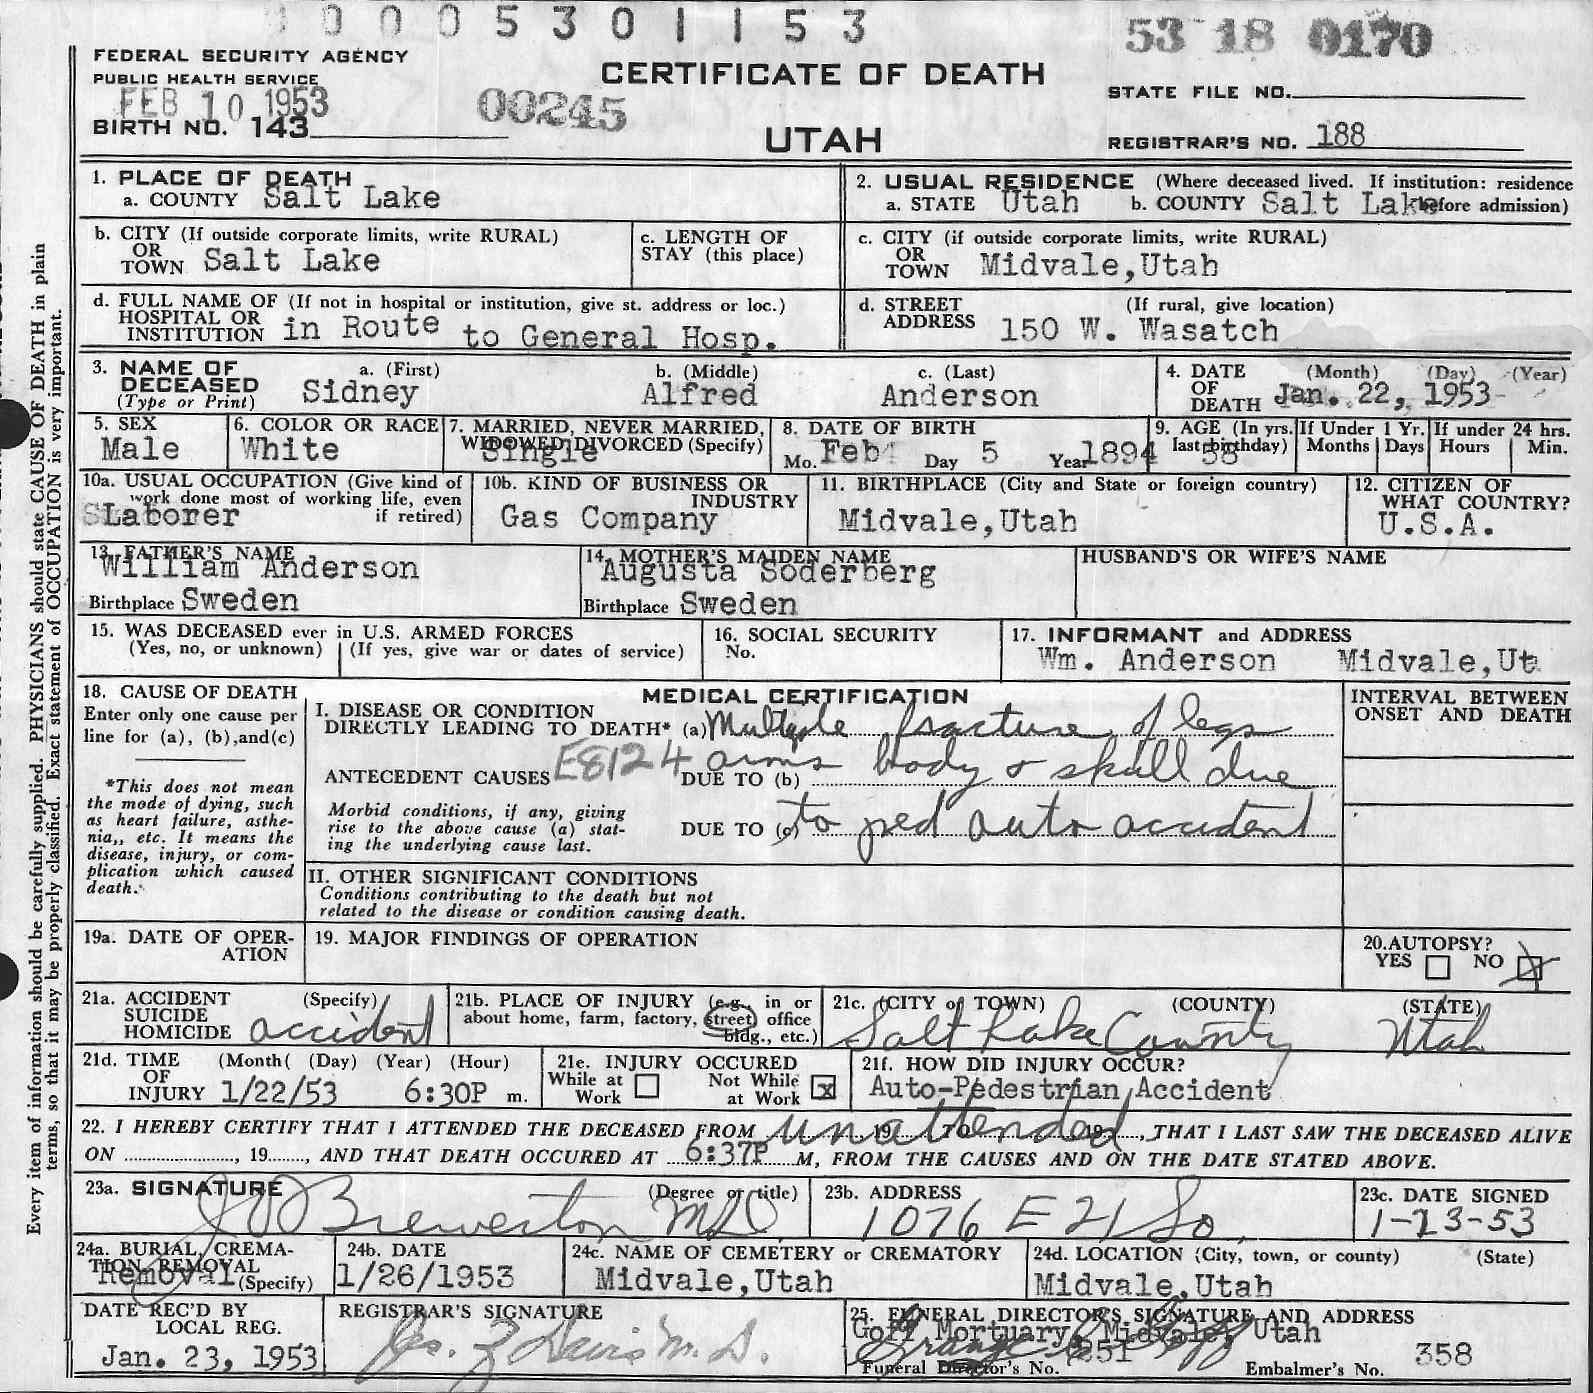 0 0 0 5 3 0 1 1 5 3
53 18 0170
FEDERAL SECURITY AGENCY
PUBLIC HEALTH SERVICE
FEB 10 1953
00245
BIRTH NO. 143
CERTIFICATE OF DEATH
UTAH
STATE FILE NO.
REGISTRAR'S NO. 188
Every item of information should be carefully supplied. PHYSICIANS should state CAUSE OF DEATH in plain
terms, so that it may be properly classified. Exact statement of OCCUPATION is very important.
1. PLACE OF DEATH
a. COUNTY Salt Lake
2. USUAL RESIDENCE (Where deceased lived. If institution: residence
a. STATE Utah b. COUNTY Salt Lake before admission)
b. CITY (If outside corporate limits, write RURAL)
OR
TOWN Salt Lake
c. LENGTH OF
STAY (this place)
c. CITY (if outside corporate limits, write RURAL)
OR
TOWN Midvale,Utah
d. FULL NAME OF (If not in hospital or institution, give st. address or loc.)
HOSPITAL OR
INSTITUTION in Route to General Hosp.
d. STREET (If rural, give location)
ADDRESS 150 W. Wasatch
3. NAME OF a. (First) b. (Middle) c. (Last)
DECEASED Sidney Alfred Anderson
(Type or Print)
4. DATE (Month) (Day) (Year)
OF
DEATH Jan. 22, 1953
5. SEX
Male
6. COLOR OR RACE
White
7. MARRIED, NEVER MARRIED,
WIDOWED, DIVORCED (Specify)
Single
8. DATE OF BIRTH
Mo. Feb Day 5 Year 1894
9. AGE (In yrs.
last birthday) 58
If Under 1 Yr.
Months Days
If under 24 hrs.
Hours Min.
10a. USUAL OCCUPATION (Give kind of
work done most of working life, even
if retired)
Laborer
10b. KIND OF BUSINESS OR
INDUSTRY
Gas Company
11. BIRTHPLACE (City and State or foreign country)
Midvale,Utah
12. CITIZEN OF
WHAT COUNTRY?
U.S.A.
13. FATHER'S NAME
William Anderson
Birthplace Sweden
14. MOTHER'S MAIDEN NAME
Augusta Soderberg
Birthplace Sweden
HUSBAND'S OR WIFE'S NAME
15. WAS DECEASED ever in U.S. ARMED FORCES
(Yes, no, or unknown) (If yes, give war or dates of service)
16. SOCIAL SECURITY
No.
17. INFORMANT and ADDRESS
Wm. Anderson Midvale,Ut
18. CAUSE OF DEATH
Enter only one cause per
line for (a), (b),and(c)
*This does not mean
the mode of dying, such
as heart failure, asthe-
nia,, etc. It means the
disease, injury, or com-
plication which caused
death.
MEDICAL CERTIFICATION
I. DISEASE OR CONDITION
DIRECTLY LEADING TO DEATH* (a) Multiple fracture of legs
ANTECEDENT CAUSES E8124 DUE TO (b) arms body & skull due
Morbid conditions, if any, giving
rise to the above cause (a) stat-
ing the underlying cause last.
DUE TO (c) to ped auto accident
INTERVAL BETWEEN
ONSET AND DEATH
II. OTHER SIGNIFICANT CONDITIONS
Conditions contributing to the death but not
related to the disease or condition causing death.
19a. DATE OF OPER-
ATION
19. MAJOR FINDINGS OF OPERATION
20.AUTOPSY?
YES NO X
21a. ACCIDENT (Specify)
SUICIDE
HOMICIDE accident
21b. PLACE OF INJURY (e.g., in or
about home, farm, factory, street, office
bldg., etc.)
21c. (CITY or TOWN) (COUNTY) (STATE)
Salt Lake County Utah
21d. TIME (Month( (Day) (Year) (Hour)
OF
INJURY 1/22/53 6:30P m.
21e. INJURY OCCURED
While at Work
Not While at Work x
21f. HOW DID INJURY OCCUR?
Auto-Pedestrian Accident
22. I HEREBY CERTIFY THAT I ATTENDED THE DECEASED FROM unattended 19 TO 19, THAT I LAST SAW THE DECEASED ALIVE
ON , 19 , AND THAT DEATH OCCURED AT 6:37P M, FROM THE CAUSES AND ON THE DATE STATED ABOVE.
23a. SIGNATURE (Degree or title)
Brewerton MD
23b. ADDRESS
1076 E 21 So.
23c. DATE SIGNED
1-23-53
24a. BURIAL, CREMA-
TION REMOVAL
Removal (Specify)
24b. DATE
1/26/1953
24c. NAME OF CEMETERY or CREMATORY
Midvale,Utah
24d. LOCATION (City, town, or county) (State)
Midvale,Utah
DATE REC'D BY
LOCAL REG.
Jan. 23, 1953
REGISTRAR'S SIGNATURE
Davis M.D.
25. FUNERAL DIRECTOR'S SIGNATURE AND ADDRESS
Goff Mortuary, Midvale, Utah
Funeral Director's No. 251 Embalmer's No. 358